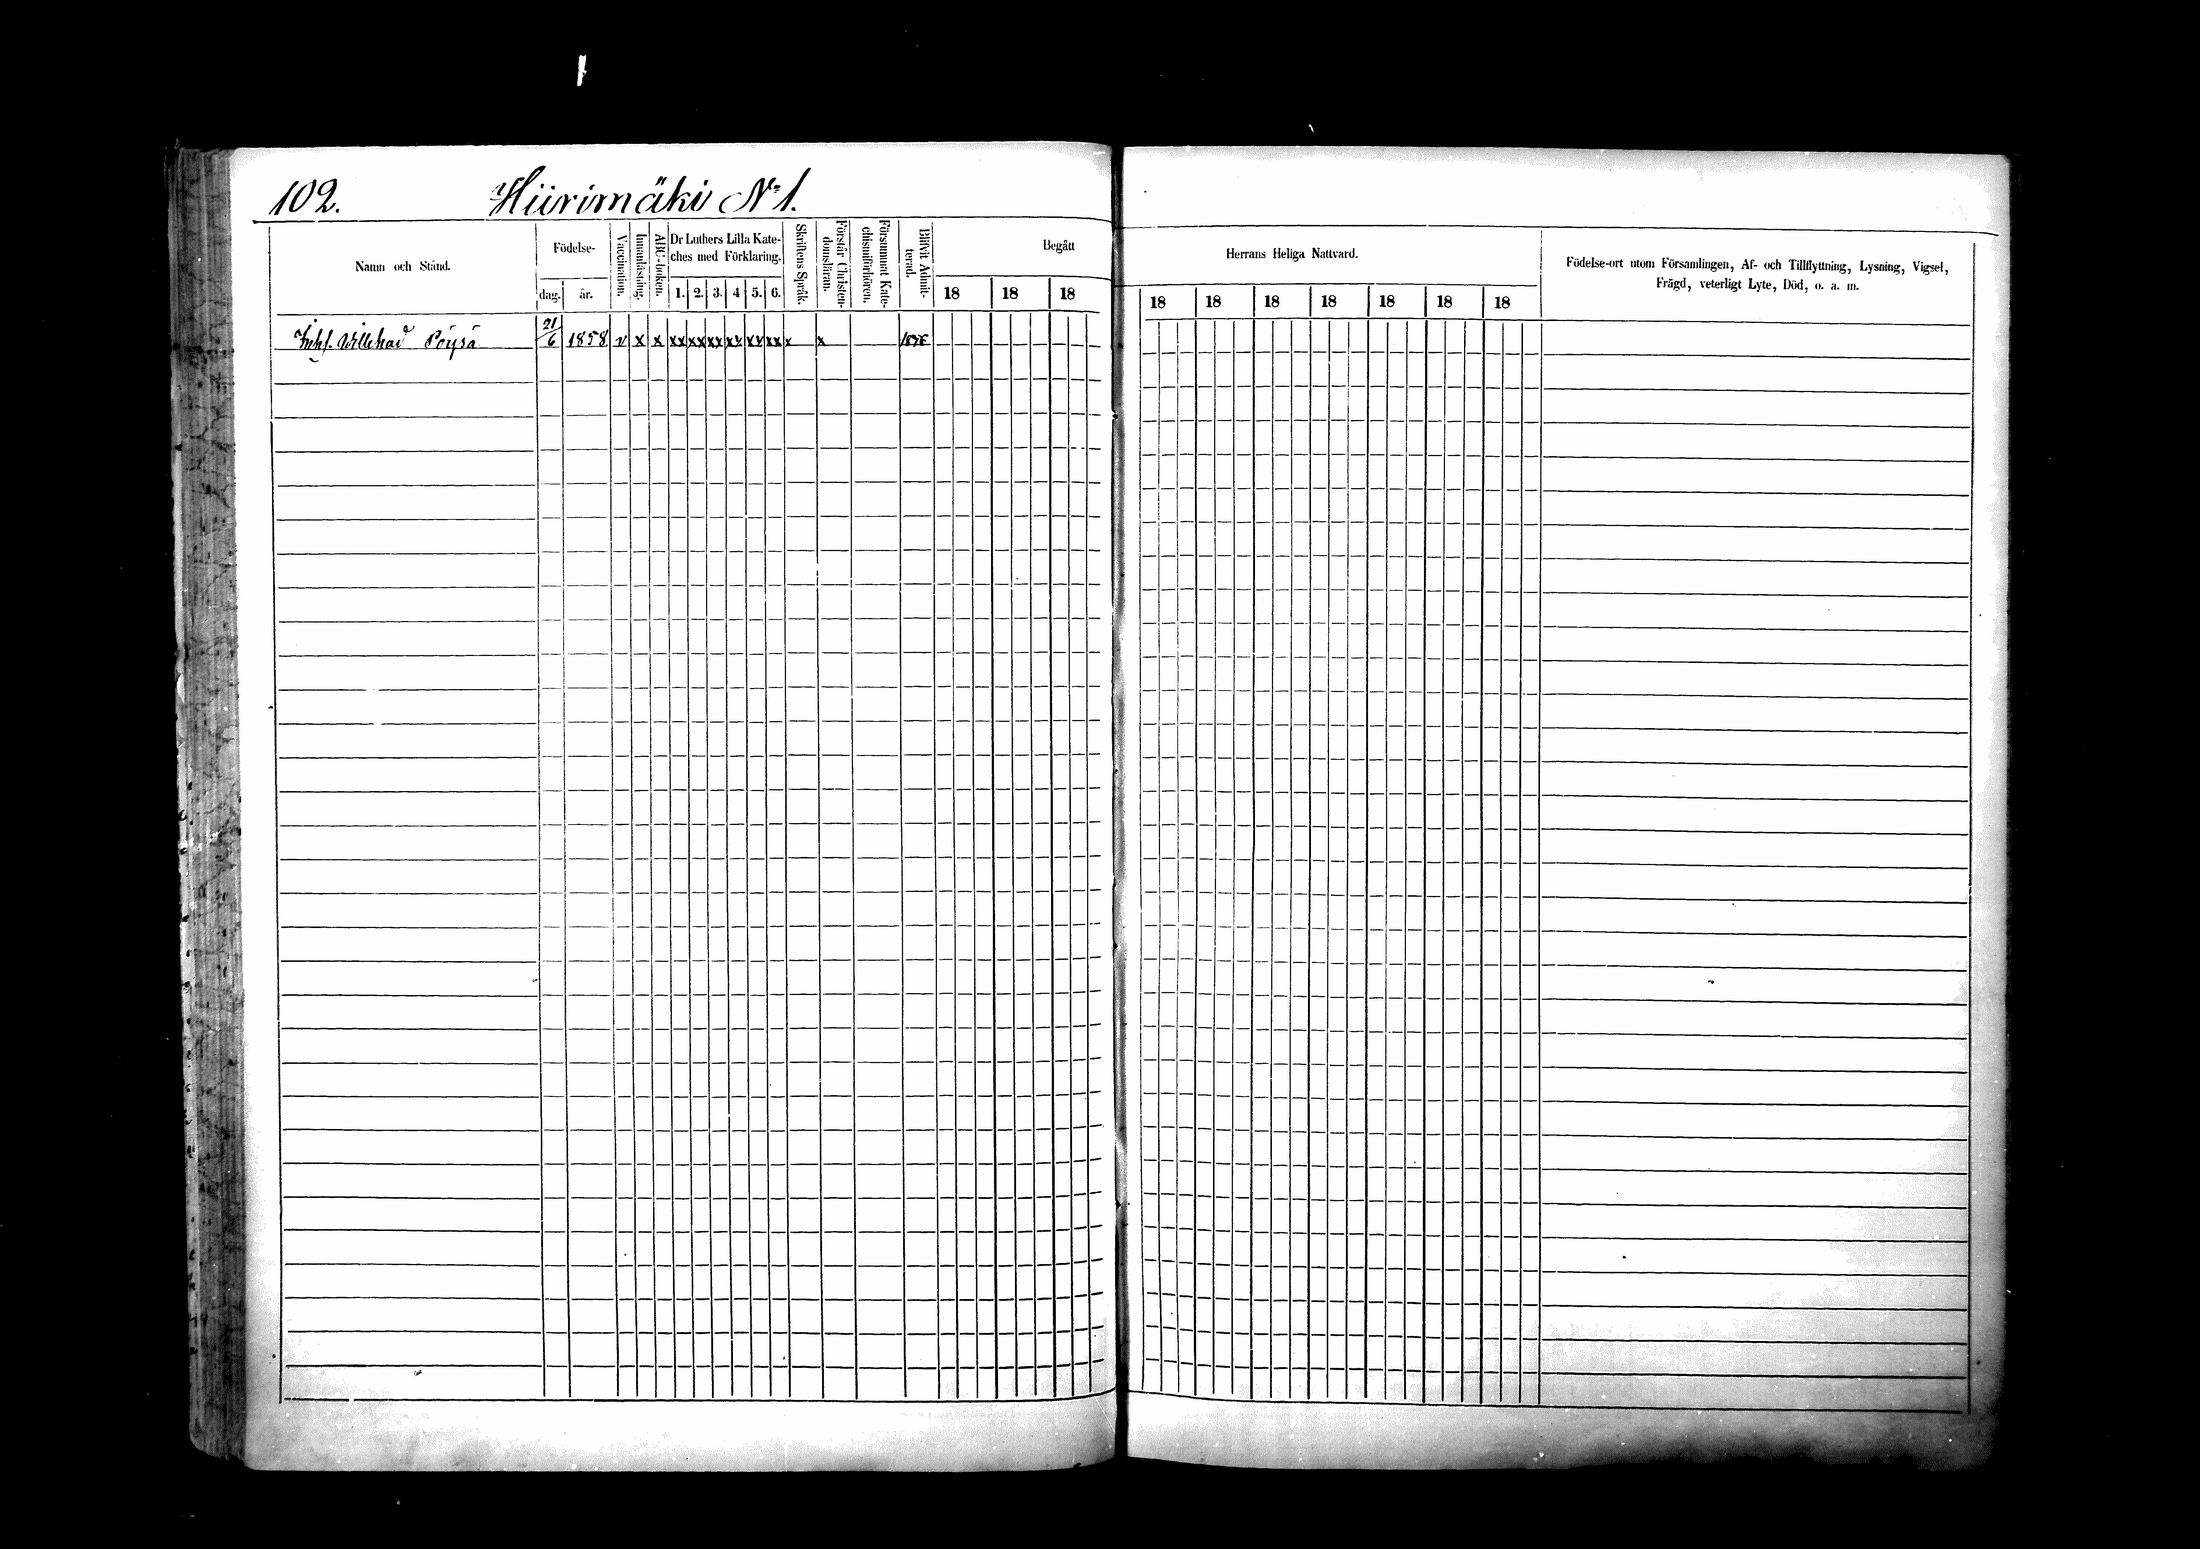 102. Hiirimäki No 1.
Namn och Stånd.
Födelse-
dag.
år.
Vaccination.
Innanläsning.
ABC-boken.
Dr Luthers Lilla Kate-
ches med Förklaring.
1. 2. 3. 4 5. 6.
Skriftens Språk.
Förstår Christen-
domsläran.
Försummat Kate-
chismiförhören.
Blifvit Admit-
terad.
Begått
18 18 18
Herrans Heliga Nattvard.
18 18 18 18 18 18 18
Födelse-ort utom Församlingen, Af- och Tillflyttning, Lysning, Vigsel,
Frägd, veterligt Lyte, Död, o. a. m.
Willehad Pöysä 21/6 1858 v x x xx xx xx xx xx xx x x